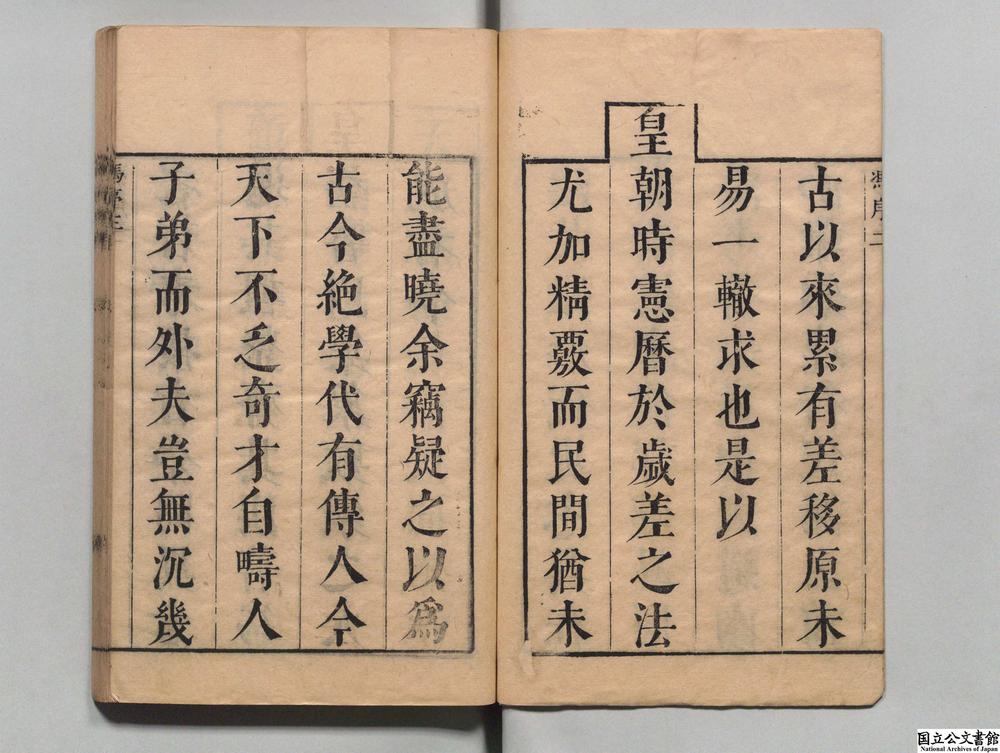 古以來累有差移原未
易一轍求也是以
皇朝時憲曆於歲差之法
尤加精覈而民間猶未
能盡曉余竊疑之以爲
古今絶學代有傳人今
天下不乏奇才自疇人
子弟而外夫豈無沉幾
馮序二
馮序三
国立公文書館
National Archives of Japan